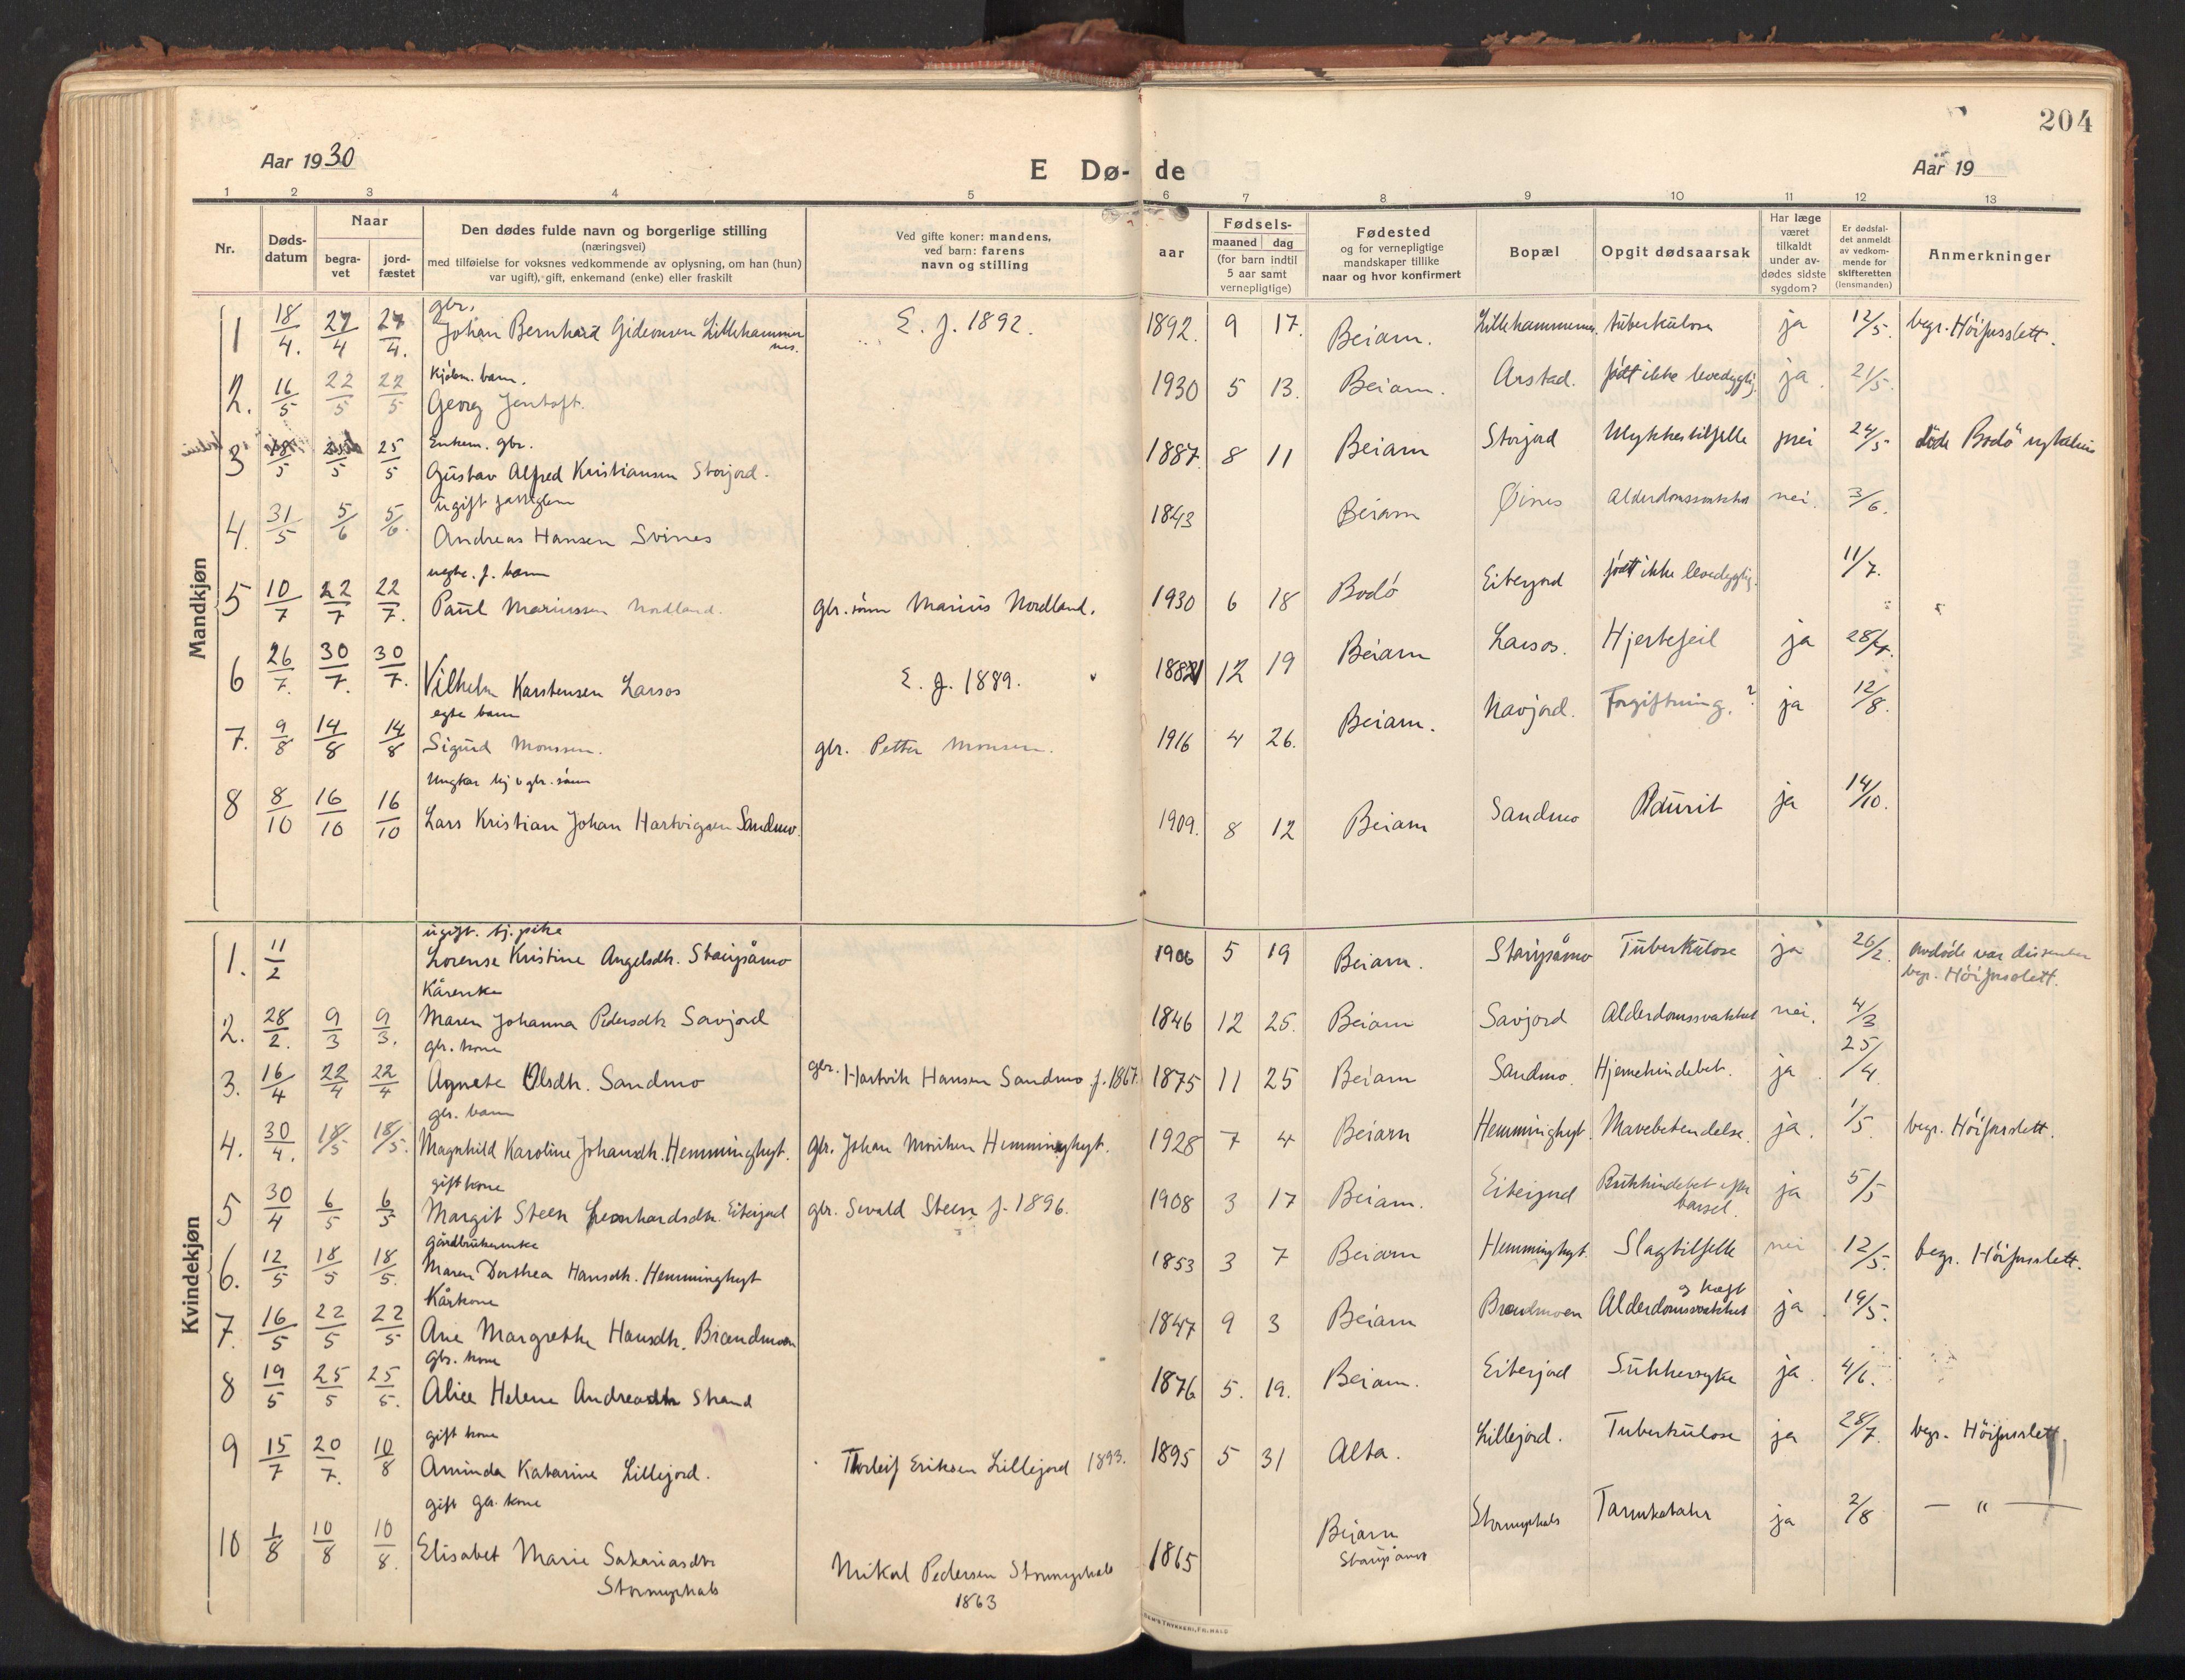 204
Aar 1930
E Dø- de
Aar 19
1 2 3 4 5 6 7 8 9 10 11 12 13
Nr.
Døds-
datum
Naar
begra-
vet
jord-
fæstet
Den dødes fulde navn og borgerlige stilling
(næringsvei)
med tilføielse for voksnes vedkommende av oplysning, om han (hun)
var ugift, gift, enkemand (enke) eller fraskilt
Ved gifte koner: mandens,
ved barn: farens
navn og stilling
aar
Fødsels-
maaned dag
(for barn indtil
5 aar samt
vernepligtige)
Fødested
og for vernepligtige
mandskaper tillike
naar og hvor konfirmert
Bopæl
Opgit dødsaarsak
Har læge
været
tilkaldt
under av-
dødes sidste
sygdom?
Er dødsfal-
det anmeldt
av vedkom-
mende for
skifteretten
(lensmanden)
Anmerkninger
Mandkjøn
gbr.
1 18/4. 27/4 27/4. Johan Bernhard Gideonsen Lillehammer
nes.
E. J. 1892. 1892. 9 17. Beiarn. Lillehammernes tuberkulose ja 12/5. begr. Höifusslett.
Kjöbm. barn.
2. 16/5 22/5 22/5 Georg Jentoft. 1930 5 13. Beiarn. Arstad. født ikke levedygtig ja. 21/5.
Enkem. gbr.
3 18/5 25/5 25/5 Gustav Alfred Kristiansen Storjord. 1887 8 11 Beiarn Storjord Ulykkestilfelle nei 24/5 döde Bodö
ugift
4. 31/5 5/6 5/6. Andreas Hansen Svines 1843 Beiarn Øines Alderdomssvakhet nei. 3/6.
uegte. f. barn
5 10/7 22/7 22/7. Paul Mariussen Nordland. gbr. sönn Marius Nordland. 1930 6 18 Bodö Eiterjord født ikke levedygtig. 11/7.
6 26/7. 30/7. 30/7. Vilhelm Karstensen Larsos E. J. 1889. 12 19 Beiarn Larsos. Hjertefeil ja 28/7.
egte barn
7. 9/8 14/8 14/8 Sigurd Monssen. gbr. Petter Monsen. 1916 4 26. Beiarn. Navjord. Forgiftning.? ja 12/8.
Ungkar gbr. sönn
8 8/10 16/10 16/10 Lars Kristian Johan Hartvigsen Sandmo. 1909. 8 12 Beiarn Sandmo Pleurit ja 14/10.
Kvindekjøn
ugift. tj. pike
1. 11/2 Lorense Kristine Angelsdtr. Staupåmo 1906 5 19 Beiarn. Staupåmo Tuberkulose ja 26/2. avdöde var dissenter
begr. Höifusslett.
Kårenke
2. 28/2. 9/3 9/3. Maren Johanna Pedersdtr Savjord 1846 12 25. Beiarn Savjord Alderdomssvakhet nei. 4/3
gbr. kone
3. 16/4 22/4 22/4 Agnete Olsdtr. Sandmo gbr. Hartvik Hansen Sandmo f. 1867. 1875 11 25 Beiarn Sandmo. Hjernehindebet. ja. 25/4.
gbr. barn
4. 30/4. 18/5 18/5. Magnhild Karoline Johansdtr. Hemminghyt. gbr. Johan Hemminghyt. 1928 7 4 Beiarn Hemminghyt. Mavebetendelse. ja. 1/5. begr. Höifusslett.
gift kone
5 30/4 6/5 6/5 Margit Steen Leonhardsdtr. Eiterjord gbr. Sevald Steen f. 1896. 1908 3 17 Beiarn. Eiterjord Bukhindebet efter
barsel.
ja 5/5
gårdbrukerenke
6. 12/5 18/5 18/5. Maren Dorthea Hansdtr. Hemminghyt 1853 3 7 Beiarn Hemminghyt. Slagtilfelle nei 12/5. begr. Höifusslett.
Kårkone
7. 16/5 22/5 22/5 Ane Margrethe Hansdtr. Brændmoen 1847 9 3 Beiarn Brændmoen Alderdomssvakhet
ja. 19/5.
gbr. kone
8 19/5 25/5 25/5. Alice Helene Andreasdtr Strand 1876 5. 19. Beiarn. Eiterjord Sukkersyke ja. 4/6.
gift kone
9 15/7 20/7. 10/8 Aminda Katarine Lillejord. Thorleif Eriksen Lillejord 1893. 1895 5 31 Alta. Lillejord. Tuberkulose ja 28/7. begr. Höifusslett
gift gbr. kone
10 1/8 10/8 10/8. Elisabet Marie Sakariasdtr
Stormyrhals
Mikal Pedersen Stormyrhals
1863
1865 Beiarn
Staupåmo
Stormyrhals Tarmkatahr ja 2/8 — " —